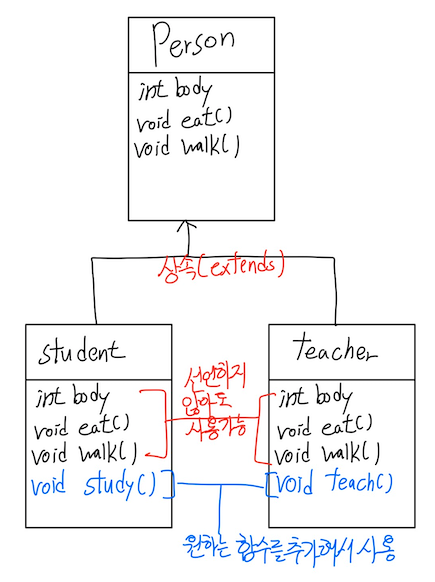 Person
int body
void eat()
void walk()
상속(extends)
student
int body
void eat()
void walk()
void study()
선언하지
않아도
사용가능
teacher
int body
void eat()
void walk()
void teach()
원하는 함수를 추가해서 사용